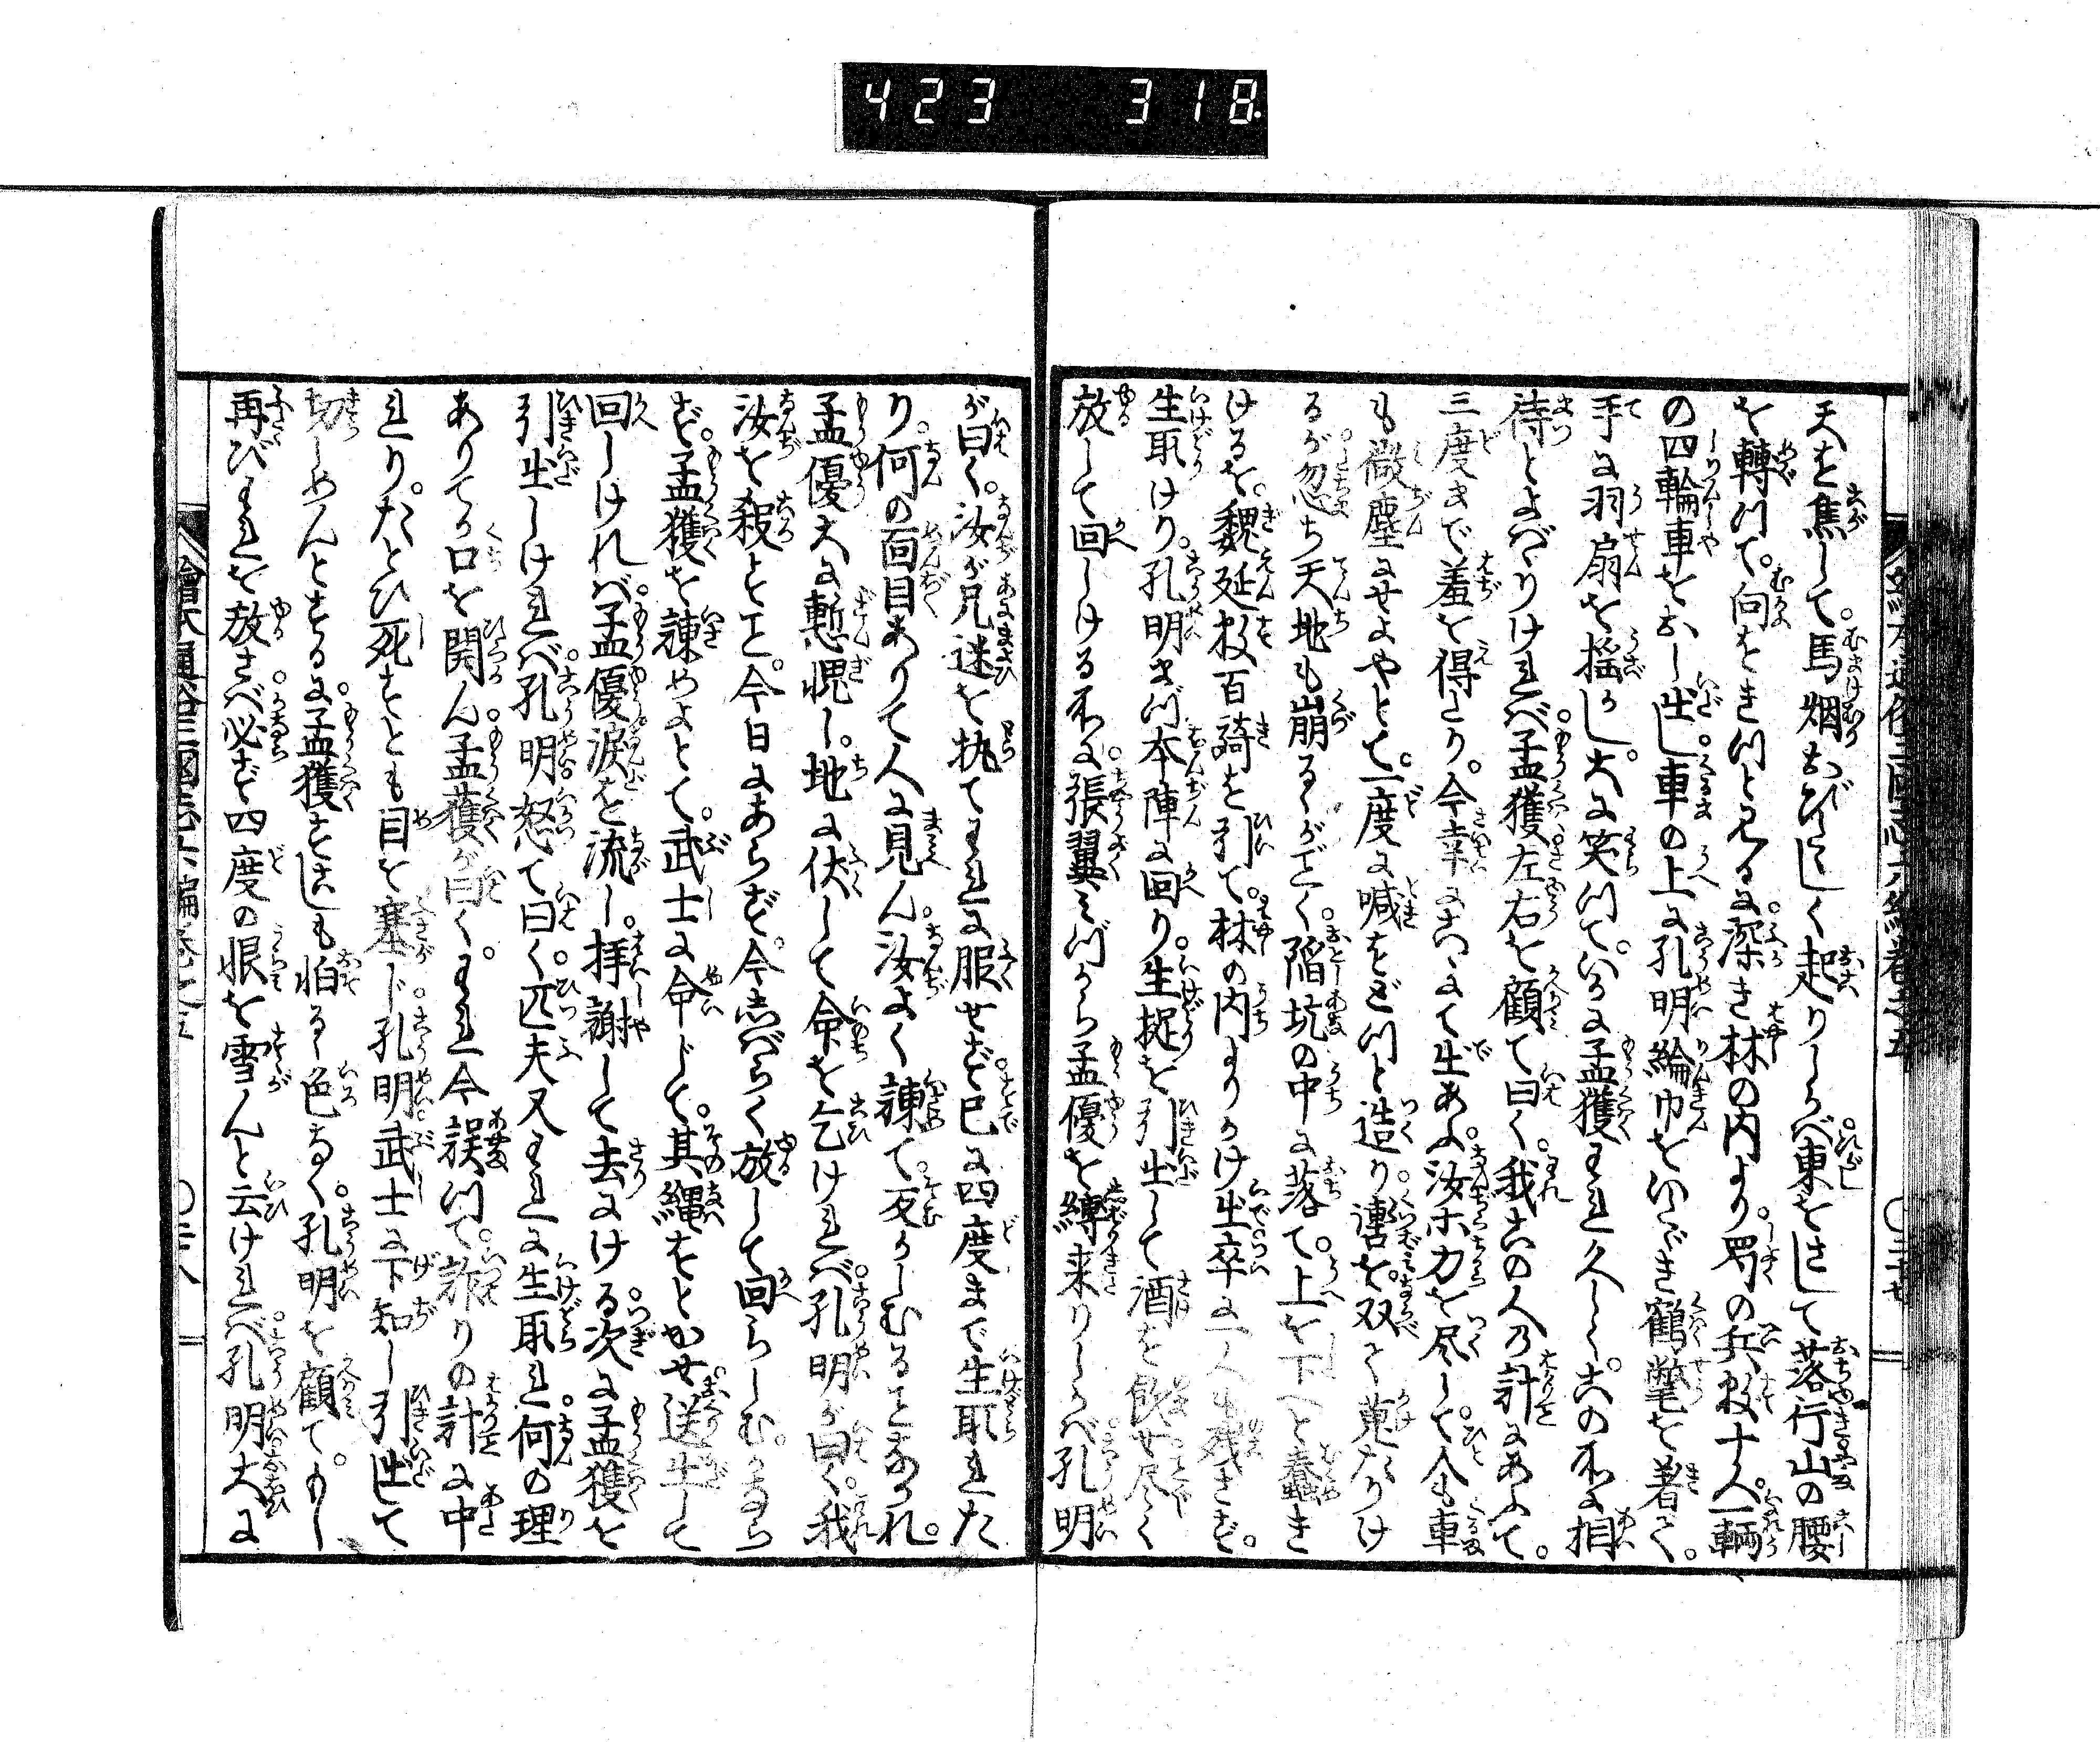 423 318
天を焦して。馬烟おびたゝしく起りしかバ東をさして落行山の腰
を轉つて。向をきつと見るに。深き林の内より。蜀の兵数十人。一輌
の四輪車をおし出し。車の上に孔明綸巾をいたゞき鶴氅を着て。
手に羽扇を揺かし。大に笑つて。いかに孟獲われ久しくこの所に相
待とよバゝりけれバ。孟獲左右を顧て曰く。我この人の計にあふて。
三度まで羞を得たり。今幸にこゝにて出あふ。汝等力を尽して人も車
も微塵にせよやとて。一度に喊をどつと造り。轡を双べて蒐たりけ
るが。忽ち天地も崩るゝがごとく。陥坑の中に落て。上を下へと蠢き
けるを。魏延数百騎を引て。林の内よりかけ出。卒に一人も残さず。
生取けり。孔明まづ本陣に回り。生捉を引出して酒を飲せ尽く
放して回しける所に。張翼ミづから孟優を縛来りしかバ孔明
が曰く。汝が兄迷を執てわれに服せず。已に四度まで生取れた
り。何の面目ありて人に見ん。汝よく諌て。反かしむることなかれ。
孟優大に慙愧し。地に伏して命を乞けれバ。孔明が曰く。我
汝を殺とも。今日にあらず。今しバらく放して回らしむ。かなら
ず。孟獲を諌めよとて。武士に命じて。其縄をとかせ。送出して
回しけれバ。孟優涙を流し。拝謝して去にける。次に孟獲を
引出しけれバ。孔明怒て曰く。匹夫又われに生取れ。何の理
ありてか口を開ん。孟獲が曰く。われ今誤つて。詐りの計に中
れり。たとひ死すとも目を塞じ。孔明武士に下知し引出して
切しめんとするに。孟獲すこしも怕るゝ色なく。孔明を顧て。もし
再びわれを放さバ。必ず四度の恨を雪んと云けれバ。孔明大に
繪本通俗三國志六編巻之五